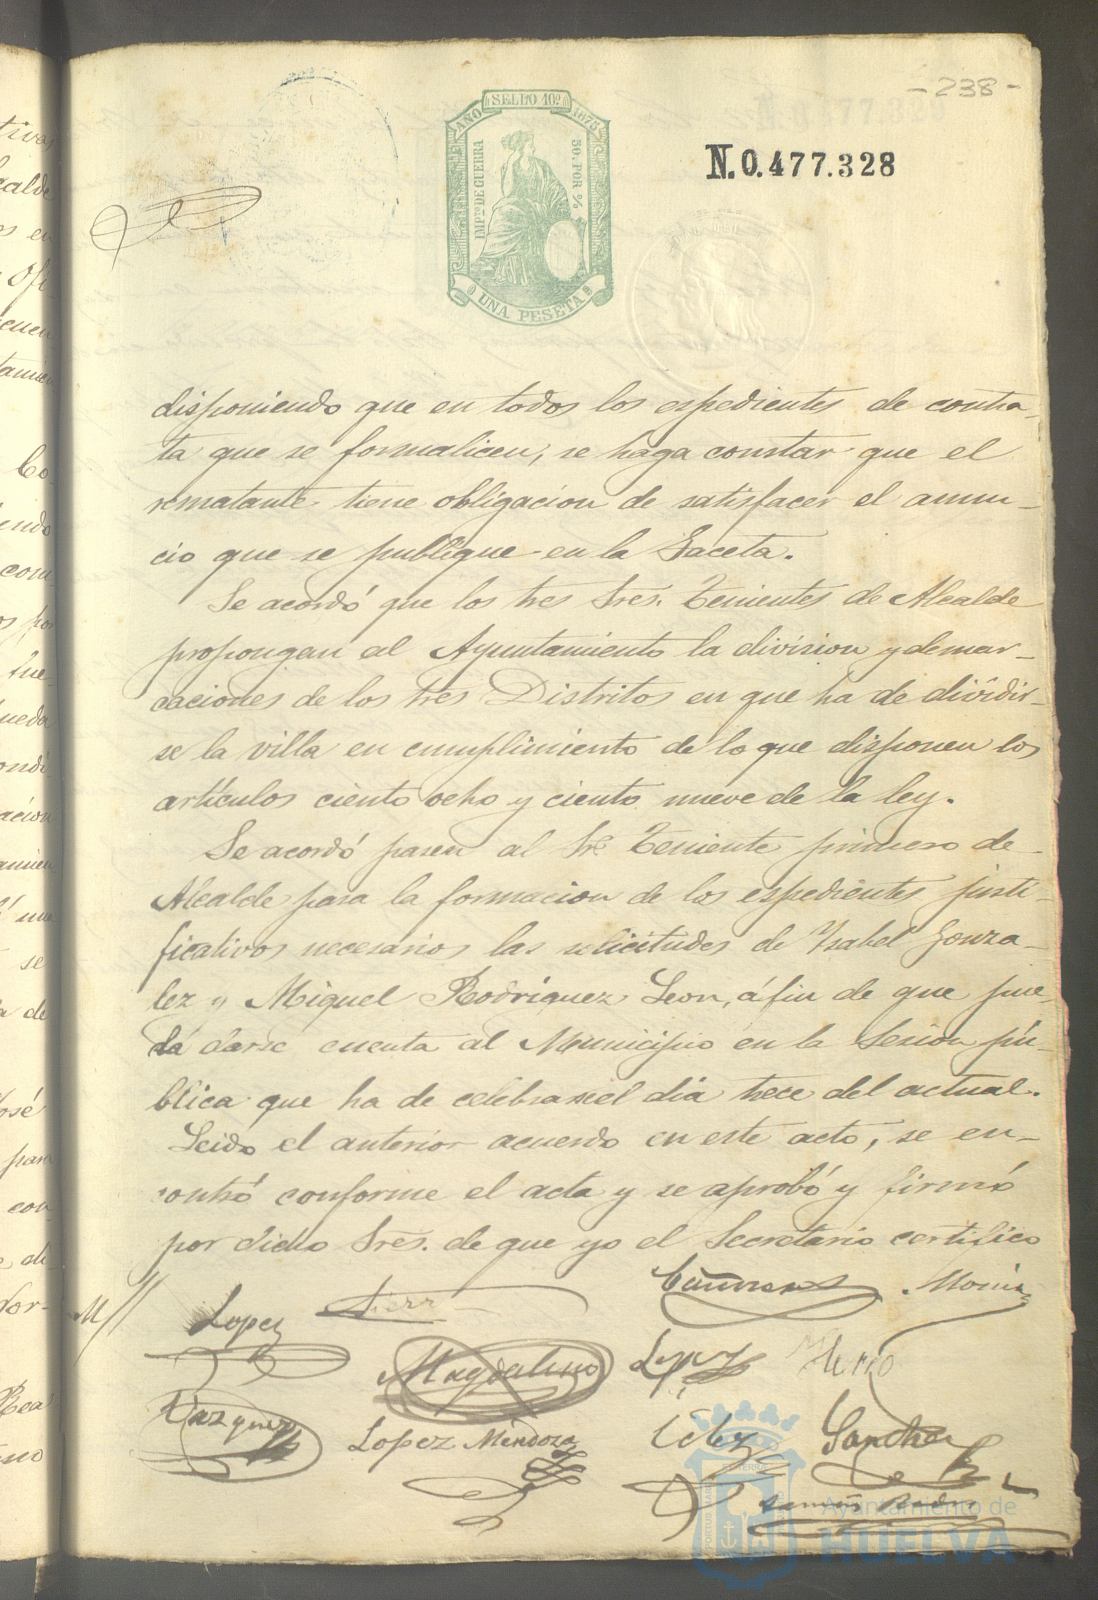 -238-
AÑO SELLO 10º 1875
IMPTO DE GUERRA
50. POR %
UNA PESETA
N.0.477.328
disponiendo que en todos los espedientes de contra-
ta que se formalicen, se haga constar que el
rematante tiene obligacion de satisfacer el anun-
cio que se publique en la Gaceta.
Se acordó que los tres Sres. Tenientes de Alcalde
propongan al Ayuntamiento la division y demar-
caciones de los tres Distritos en que ha de dividir-
se la villa en cumplimiento de lo que disponen los
artículos ciento ocho y ciento nueve de la ley.
Se acordó pasen al Sr. Teniente primero de
Alcalde para la formacion de los espedientes justi-
ficativos necesarios las solicitudes de Ysabel Gonza-
lez y Miguel Rodriguez Leon, á fin de que pue-
da darse cuenta al Municipio en la Sesion pú-
blica que ha de celebrarse el dia trece del actual.
Leido el anterior acuerdo en este acto, se en-
contró conforme el acta y se aprobó y firmó
por dicho Sres. de que yo el Secretario certifico
Lopez
Magdaleno Lopez
Vazquez Lopez Mendoza Sanchez
Ayuntamiento de
HUELVA